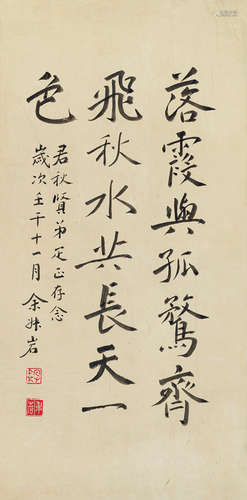 落霞與孤鶩齊
飛秋水共長天一
色
君秋賢弟疋正存念
歲次壬午十一月 余叔岩